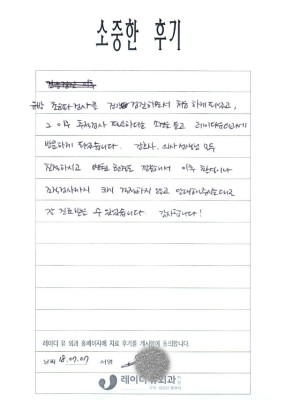 소중한 후기
유방 초음파 검사를 건강검진하면서 처음 하게 되었고,
그 이후 추적검사 필요하다는 소견을 듣고 레이디유외과에
방문하게 되었습니다. 간호사, 의사선생님 모두
친절하시고 병원 환경도 깔끔해서 이후
조직검사까지 크게 걱정하지 않고 안내해주시는대로
잘 진료받을 수 있었습니다. 감사합니다!
레이디 유 외과 홈페이지에 치료 후기를 게시함에 동의합니다.
날짜 18.07.07 서명
레이디유외과